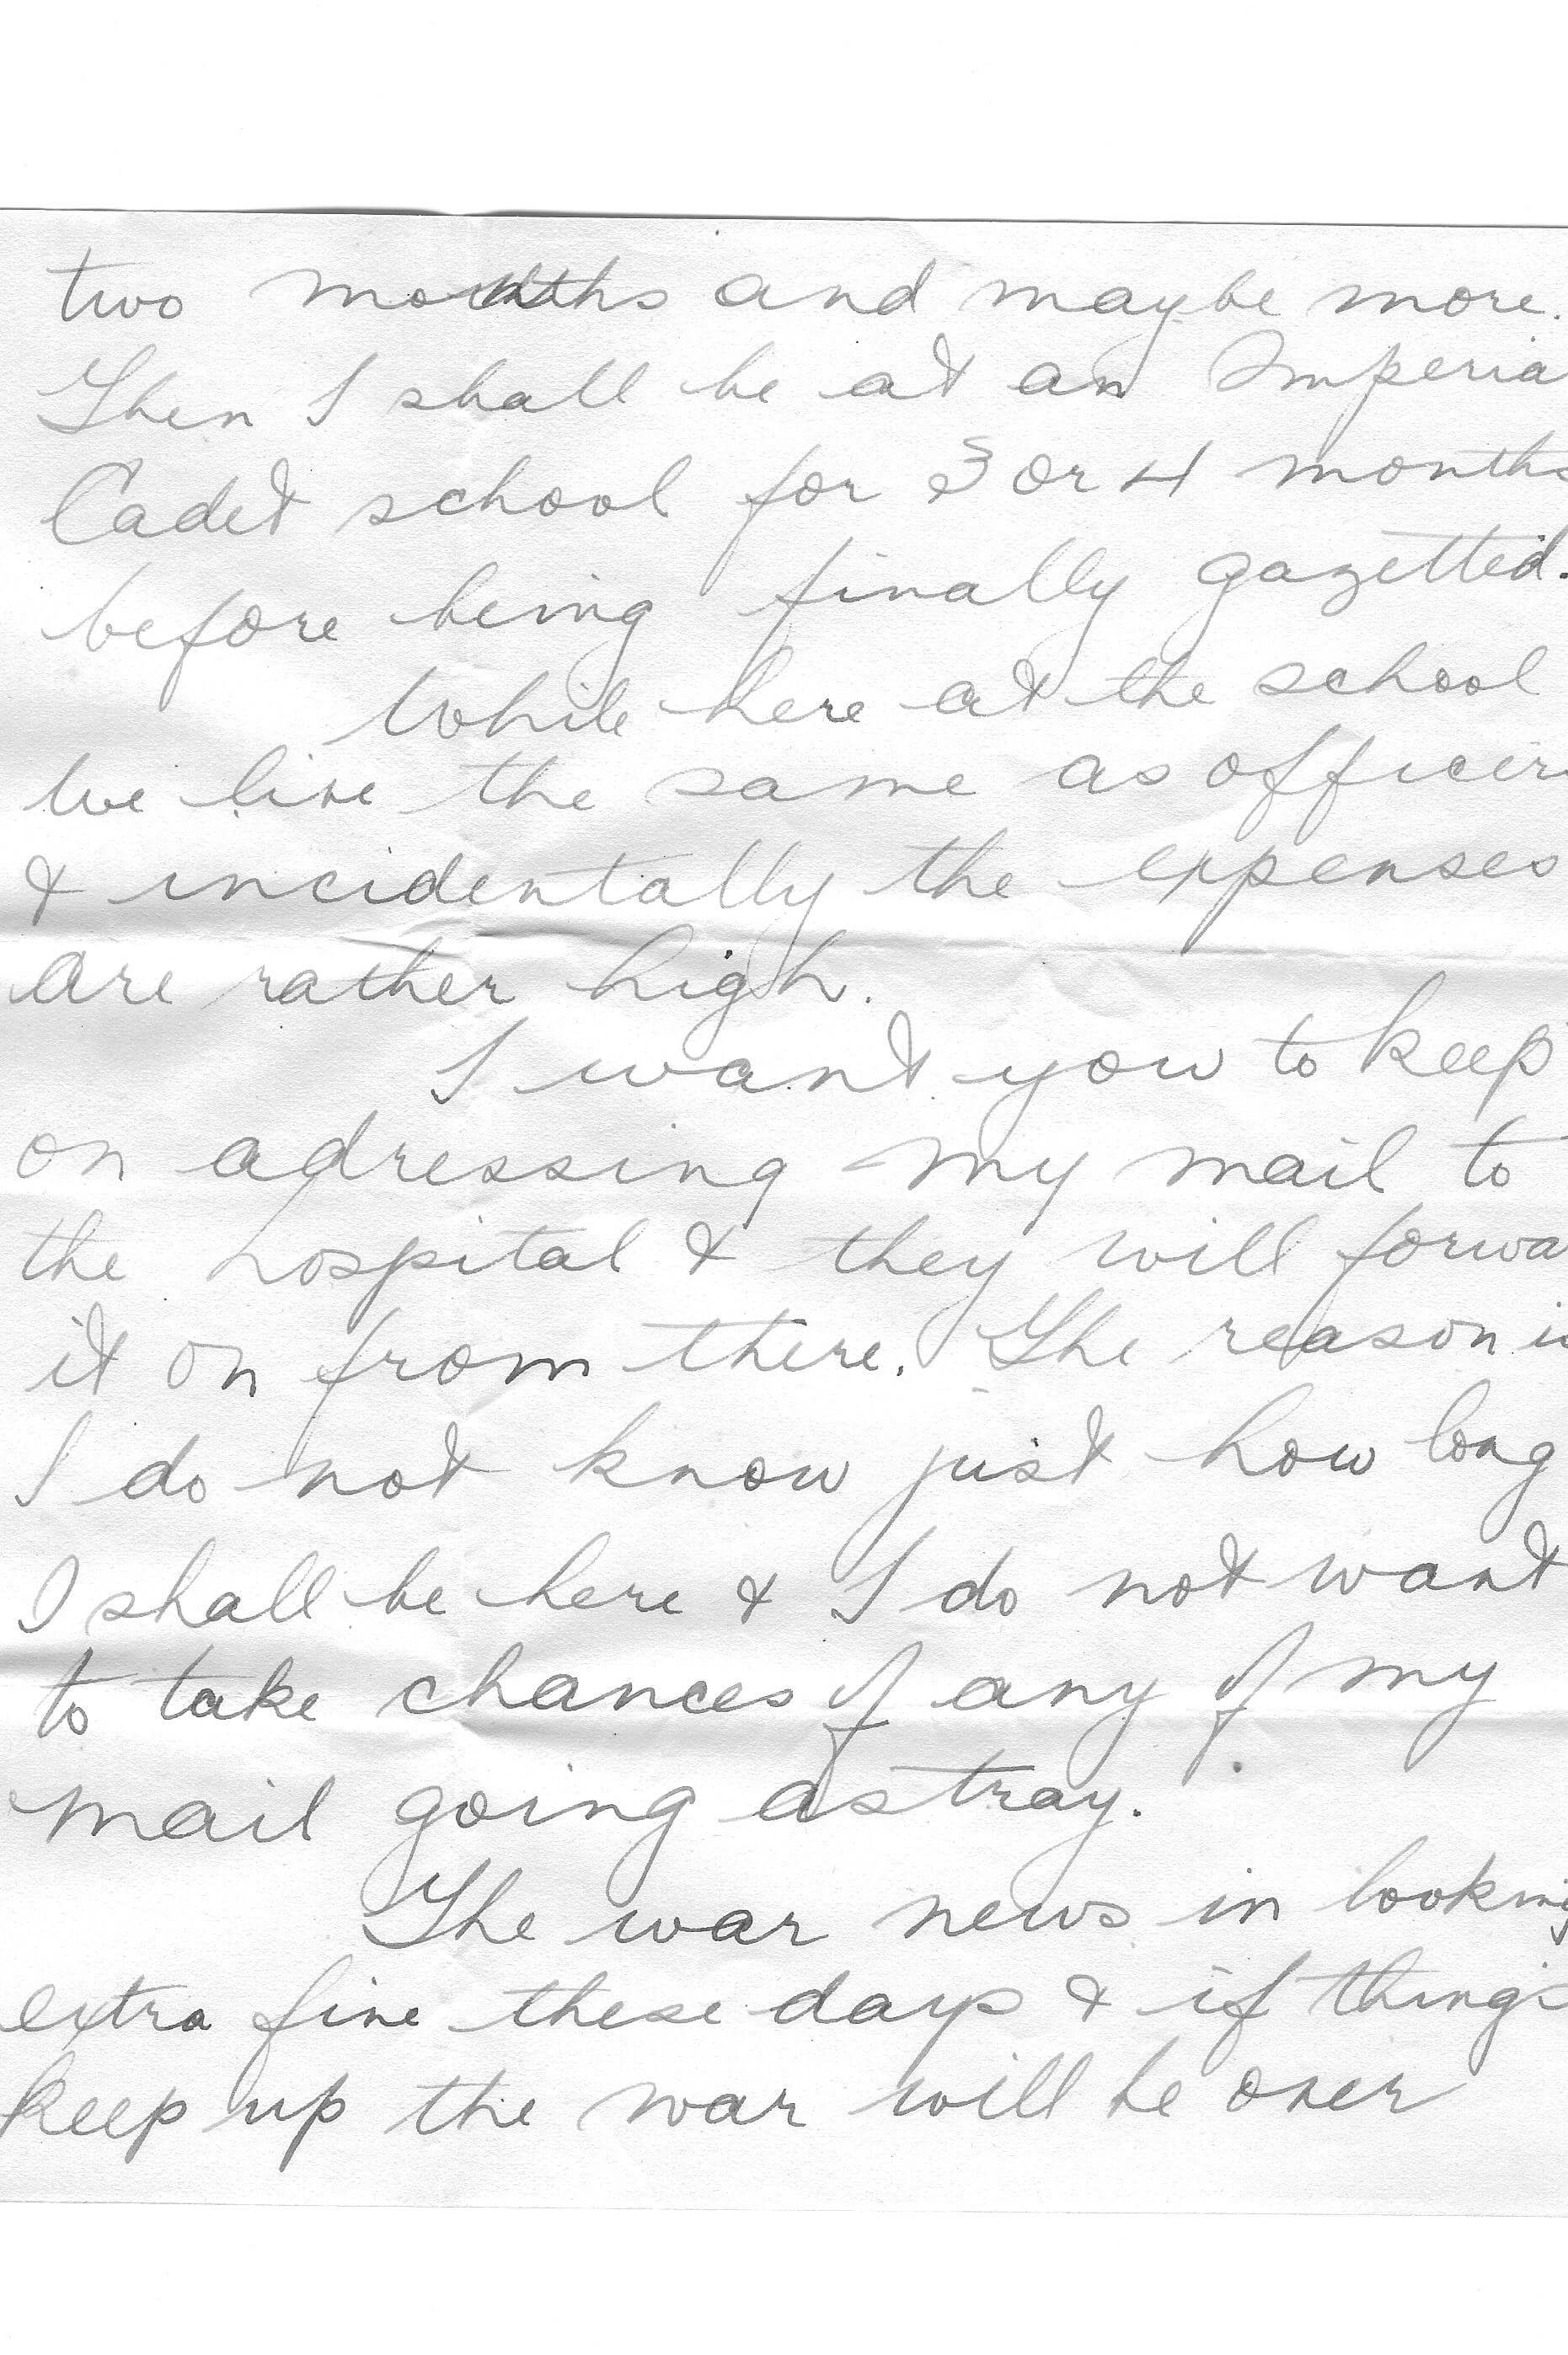 two months and maybe more.
Then I shall be at an Imperia
Cadet school for 3 or 4 months
before being finally gazetted.
While here at the school
we live the same as officers
& incidentally the expenses
are rather high.
I want you to keep
on adressing my mail to
the hospital & they will forwa
it on from there. The reason is
I do not know just how long
I shall be here & I do not want
to take chances of any of my
mail going astray.
The war news in looking
extra fine these days & if things
keep up the war will be over